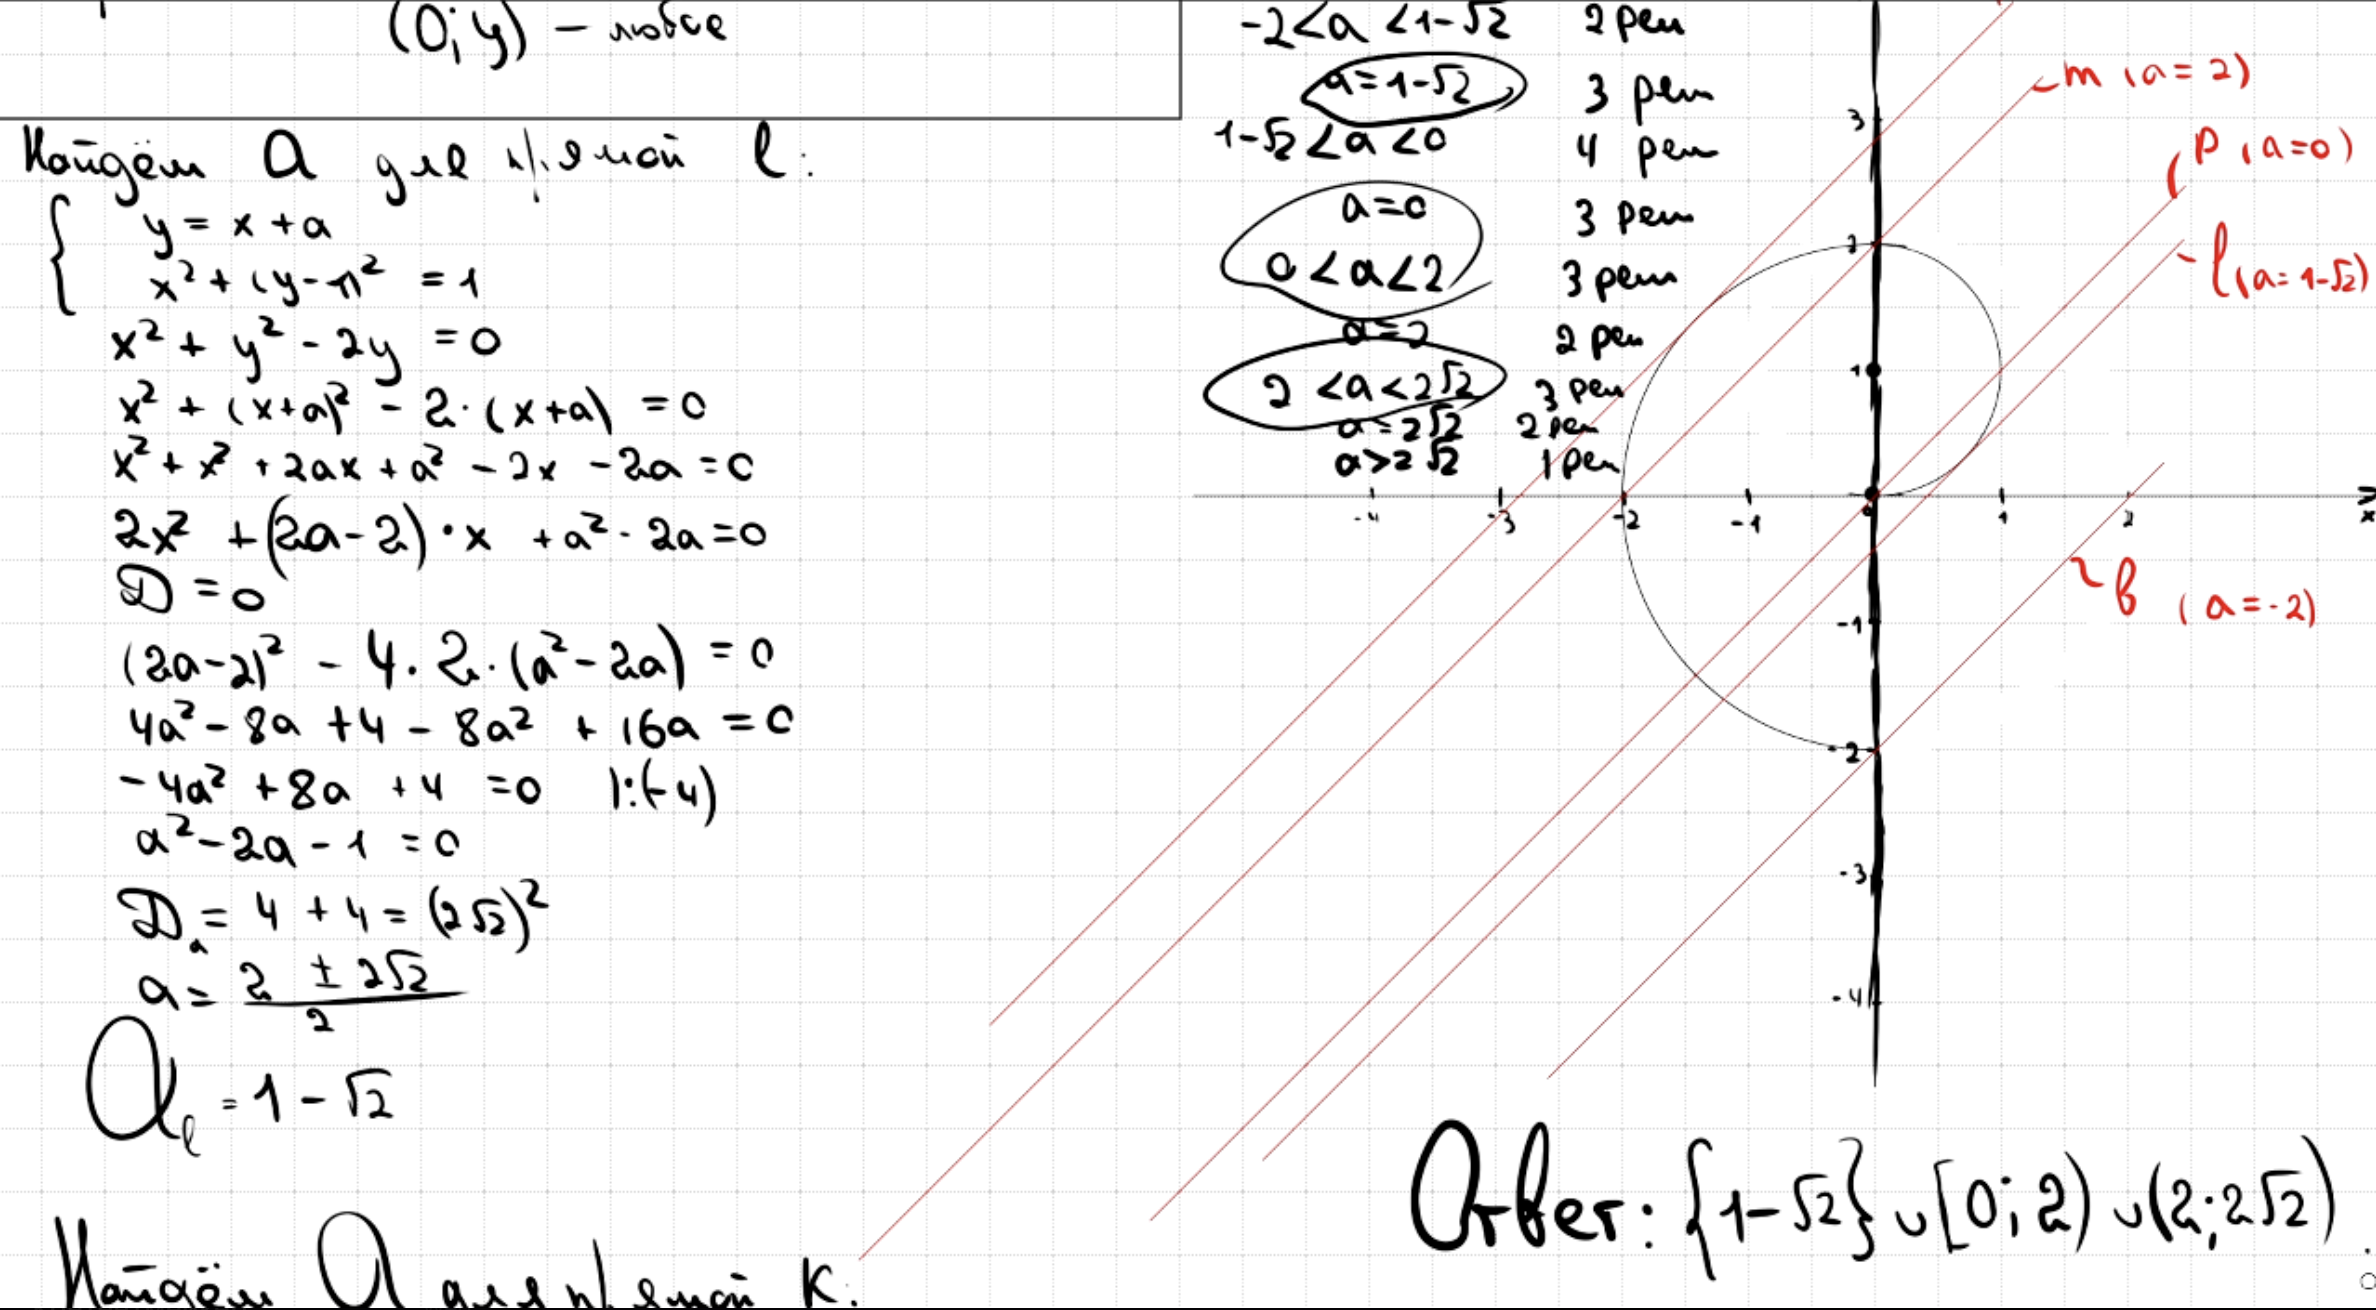 (0; y) – любое
Найдём a для прямой l:
y = x + a
x² + (y-1)² = 1
x² + y² - 2y = 0
x² + (x+a)² - 2·(x+a) = 0
x² + x² + 2ax + a² - 2x - 2a = 0
2x² + (2a-2)·x + a² - 2a = 0
D = 0
(2a-2)² - 4·2·(a² - 2a) = 0
4a² - 8a + 4 - 8a² + 16a = 0
-4a² + 8a + 4 = 0 |:(-4)
a² - 2a - 1 = 0
Dₐ = 4 + 4 = (2√2)²
a = (2 ± 2√2)/2
aₗ = 1 - √2
Найдём a для прямой k:
-2 < a < 1-√2 2 реш
a = 1-√2 3 реш
1-√2 < a < 0 4 реш
a = 0 3 реш
0 < a < 2 3 реш
a = 2 2 реш
2 < a < 2√2 3 реш
a = 2√2 2 реш
a > 2√2 1 реш
m (a = 2)
p (a = 0)
l (a = 1-√2)
b (a = -2)
3
2
1
-4 -3 -2 -1 0 1 2 x
-1
-2
-3
-4
Ответ: {1-√2} ∪ [0; 2) ∪ (2; 2√2)